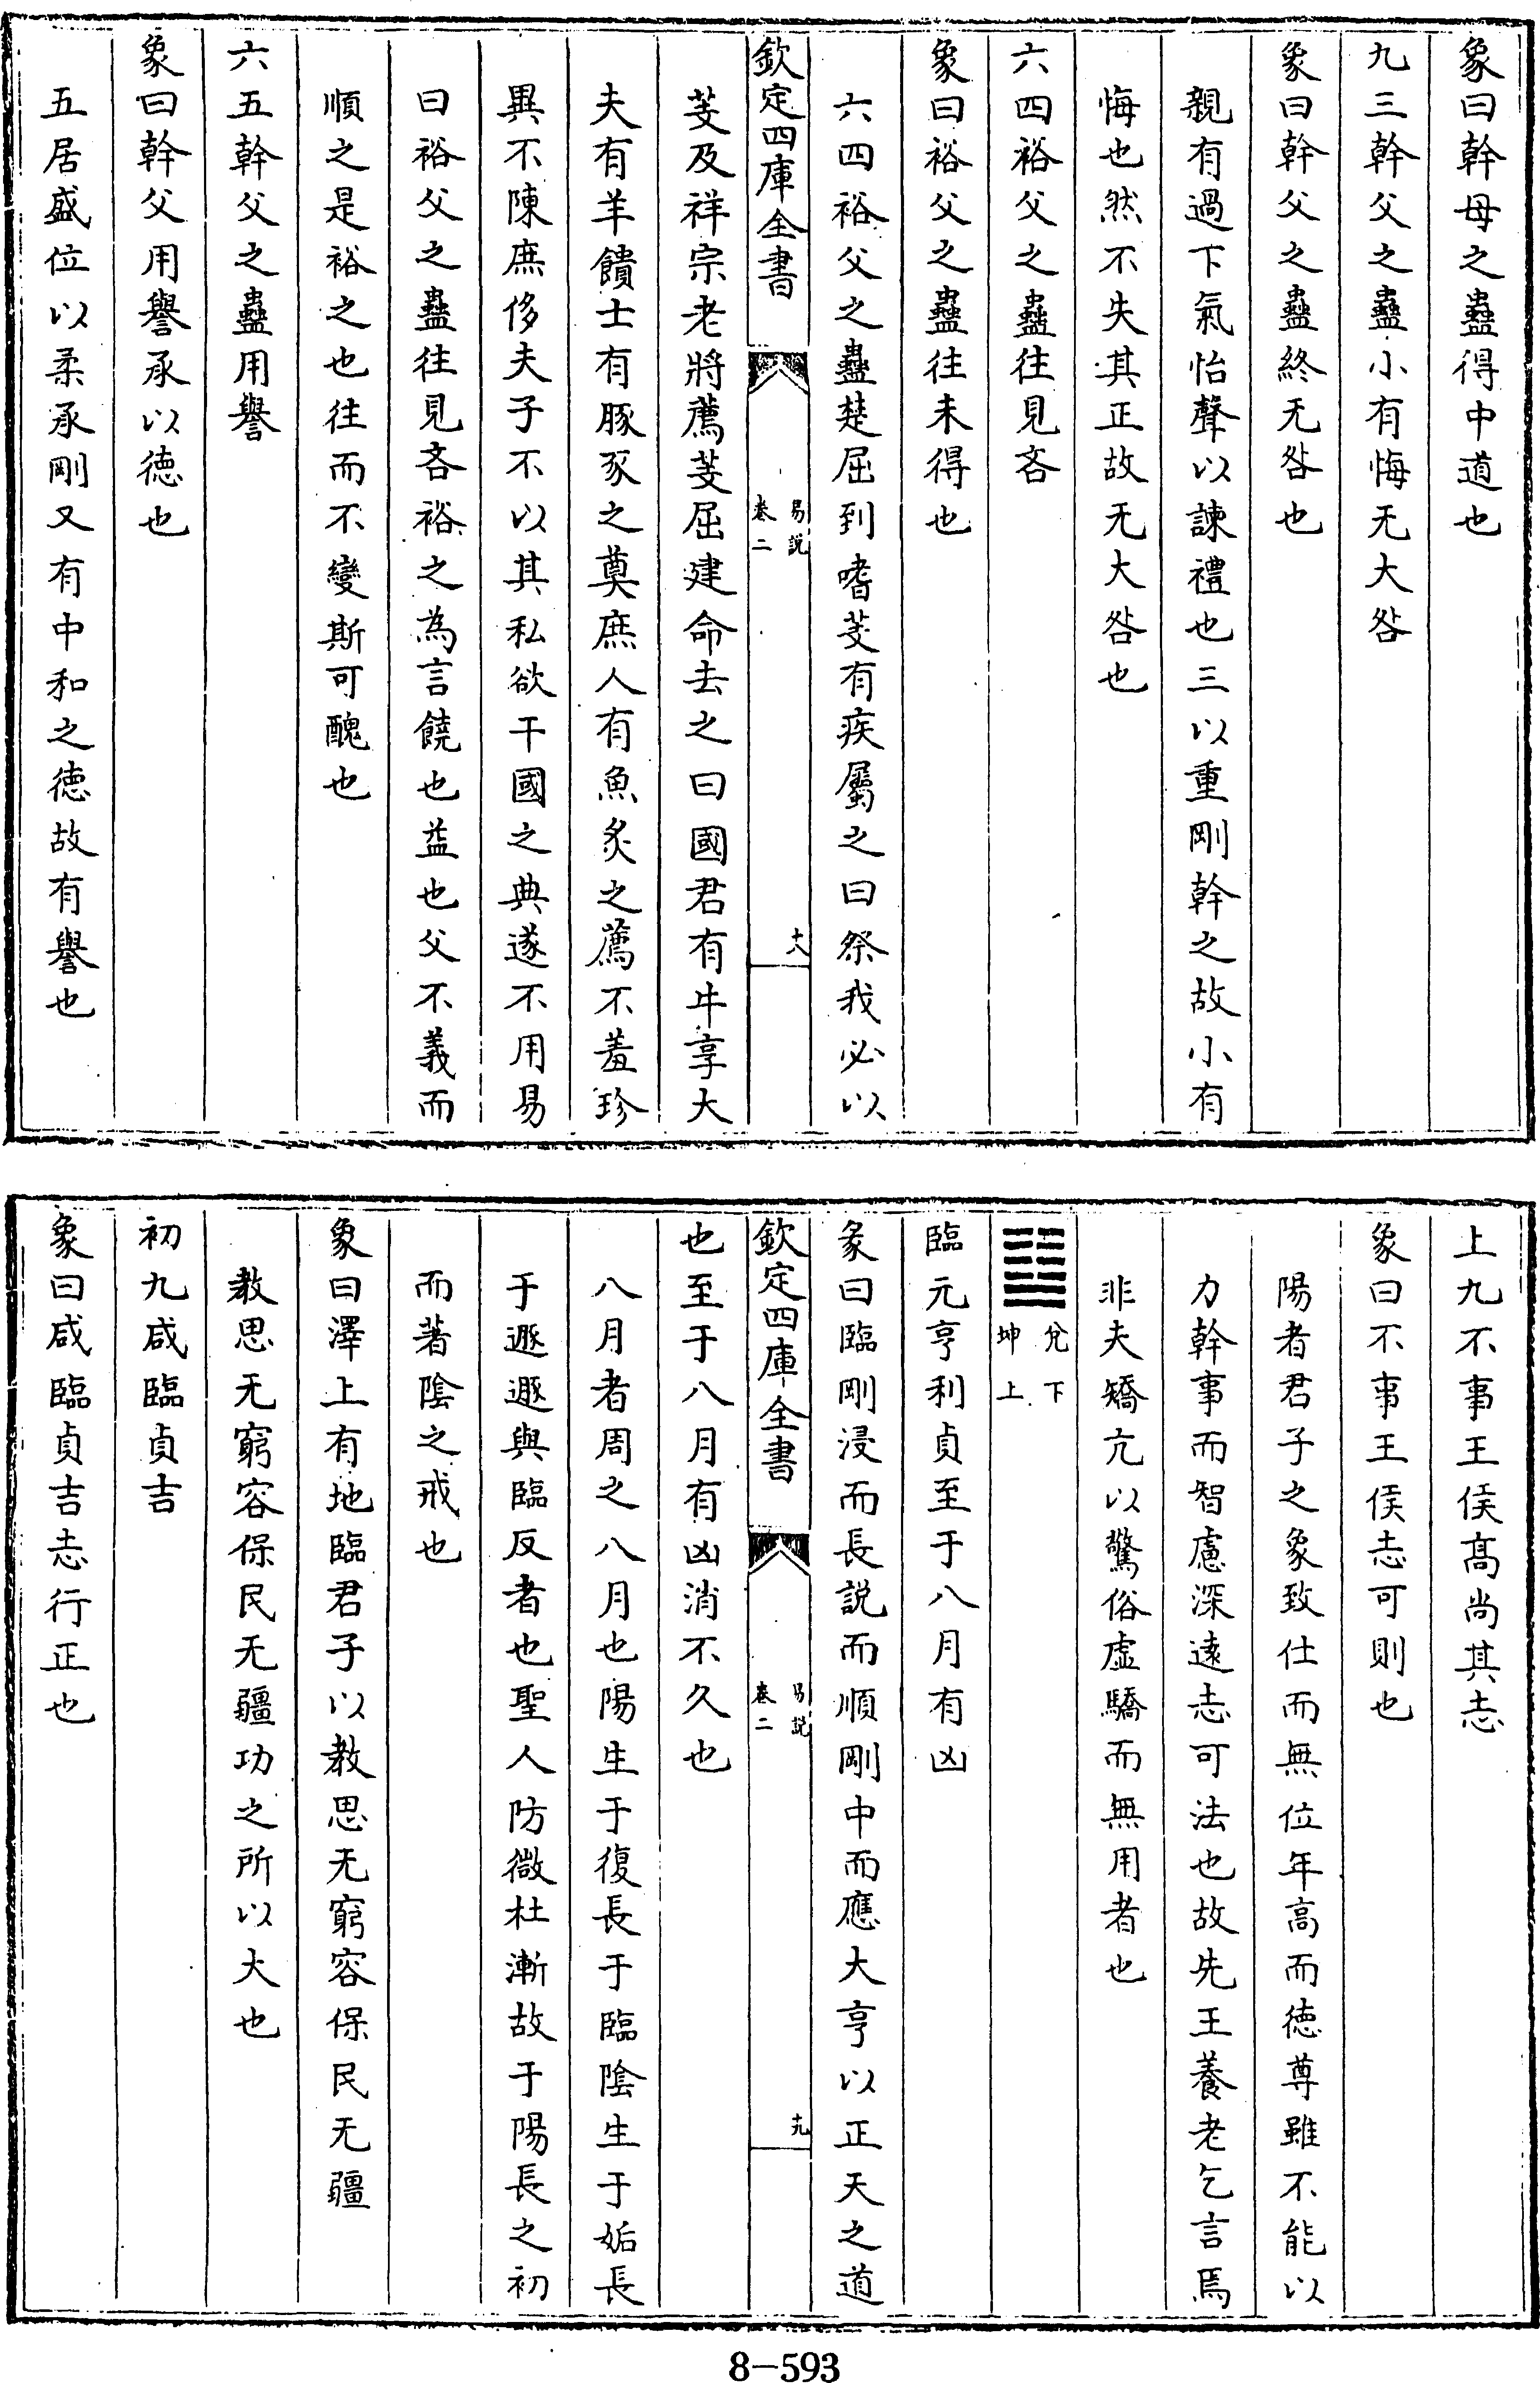 象曰幹母之蠱得中道也
九三幹父之蠱小有悔无大咎
象曰幹父之蠱終无咎也
親有過下氣怡聲以諫禮也三以重剛幹之故小有
悔也然不失其正故无大咎也
六四裕父之蠱往見吝
象曰裕父之蠱往未得也
六四裕父之蠱楚屈到嗜芰有疾屬之曰祭我必以
欽定四庫全書
易說
卷二
十八
芰及祥宗老將薦芰屈建命去之曰國君有牛享大
夫有羊饋士有豚豕之奠庶人有魚炙之薦不羞珍
異不陳庶侈夫子不以其私欲干國之典遂不用易
曰裕父之蠱往見吝裕之為言饒也益也父不義而
順之是裕之也往而不變斯可醜也
六五幹父之蠱用譽
象曰幹父用譽承以德也
五居盛位以柔承剛又有中和之德故有譽也
上九不事王侯髙尚其志
象曰不事王侯志可則也
陽者君子之象致仕而無位年高而德尊雖不能以
力幹事而智慮深遠志可法也故先王養老乞言焉
非夫矯亢以驚俗虛驕而無用者也
䷒
兌下
坤上
臨元亨利貞至于八月有凶
彖曰臨剛浸而長説而順剛中而應大亨以正天之道
欽定四庫全書
易說
卷二
十九
也至于八月有凶消不久也
八月者周之八月也陽生于復長于臨陰生于姤長
于遯遯與臨反者也聖人防微杜漸故于陽長之初
而著陰之戒也
象曰澤上有地臨君子以教思无窮容保民无疆
教思无窮容保民无疆功之所以大也
初九咸臨貞吉
象曰咸臨貞吉志行正也
8-593